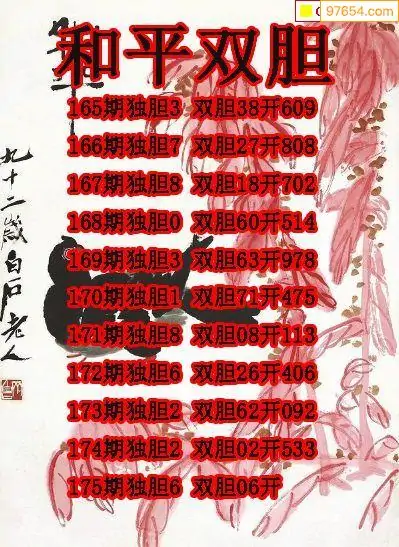 97654.com
和平双胆
165期独胆3 双胆38开609
166期独胆7 双胆27开808
167期独胆8 双胆18开702
168期独胆0 双胆60开514
169期独胆3 双胆63开978
170期独胆1 双胆71开475
171期独胆8 双胆08开113
172期独胆6 双胆26开406
173期独胆2 双胆62开092
174期独胆2 双胆02开533
175期独胆6 双胆06开
九十二岁白石老人